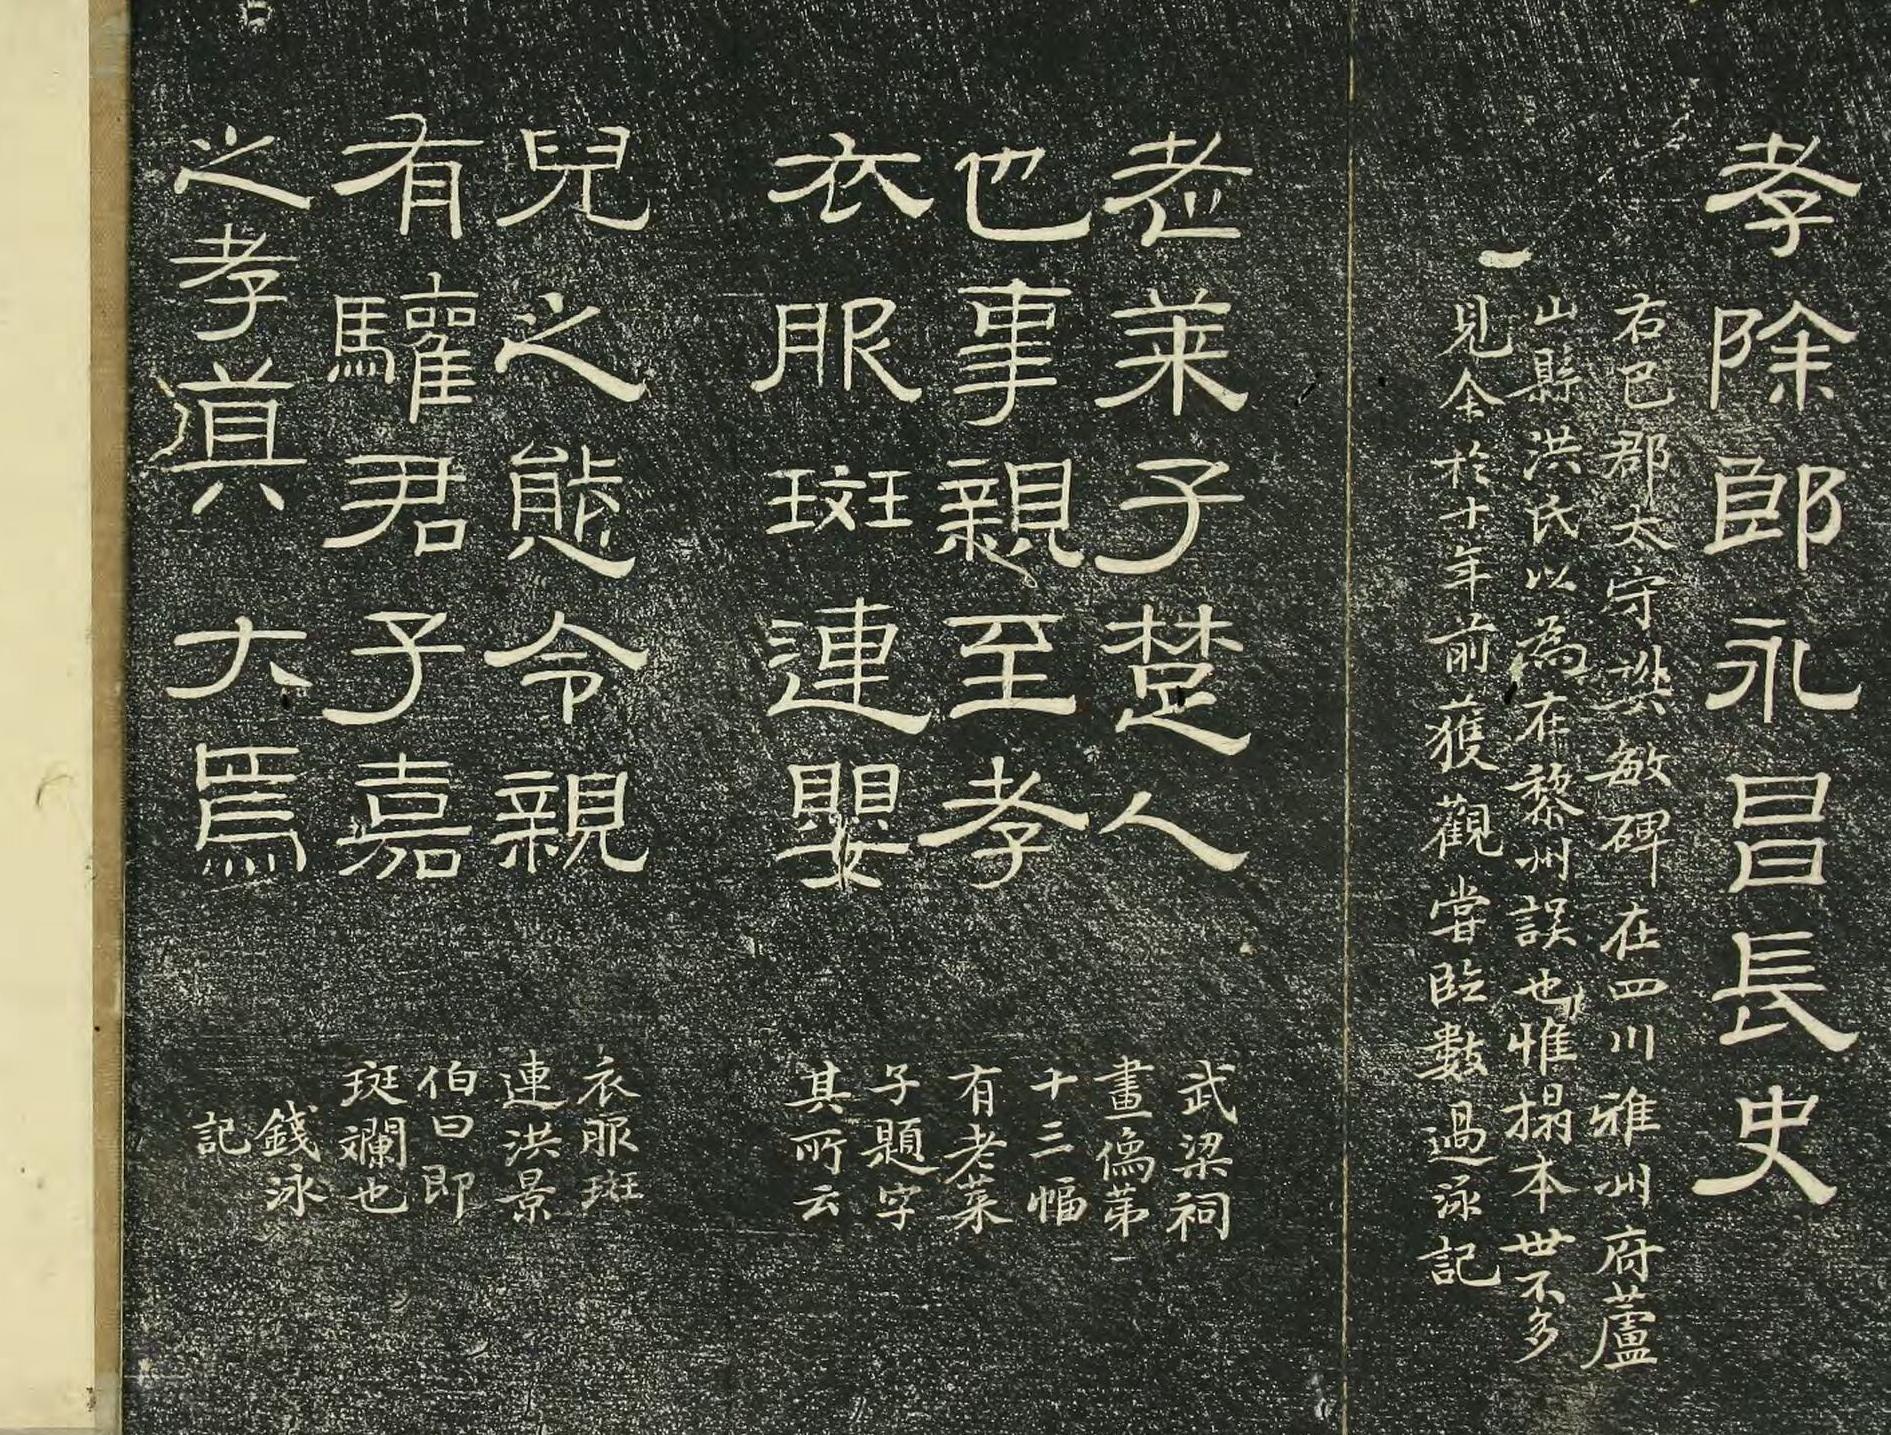 孝除郎永昌長史
右巴郡太守樊敏碑在四川雅州府蘆
山縣洪氏以為在黎州誤也惟搨本世不多
見余於十年前獲觀嘗臨數過泳記
老萊子楚人
也事親至孝
衣服斑連嬰
兒之態令親
有驩君子嘉
之孝道大焉
武梁祠
畫像第
十三幅
有老萊
子題字
其所云
衣服斑
連洪景
伯曰即
斑斕也
錢泳
記